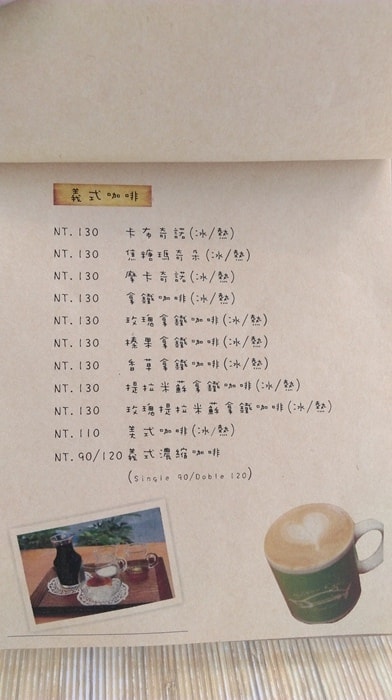 義式咖啡
NT.130 卡布奇諾(冰/熱)
NT.130 焦糖瑪奇朵(冰/熱)
NT.130 摩卡奇諾(冰/熱)
NT.130 拿鐵咖啡(冰/熱)
NT.130 玫瑰拿鐵咖啡(冰/熱)
NT.130 榛果拿鐵咖啡(冰/熱)
NT.130 香草拿鐵咖啡(冰/熱)
NT.130 提拉米蘇拿鐵咖啡(冰/熱)
NT.130 玫瑰提拉米蘇拿鐵咖啡(冰/熱)
NT.110 美式咖啡(冰/熱)
NT.90/120 義式濃縮咖啡
(Single 90/Doble 120)